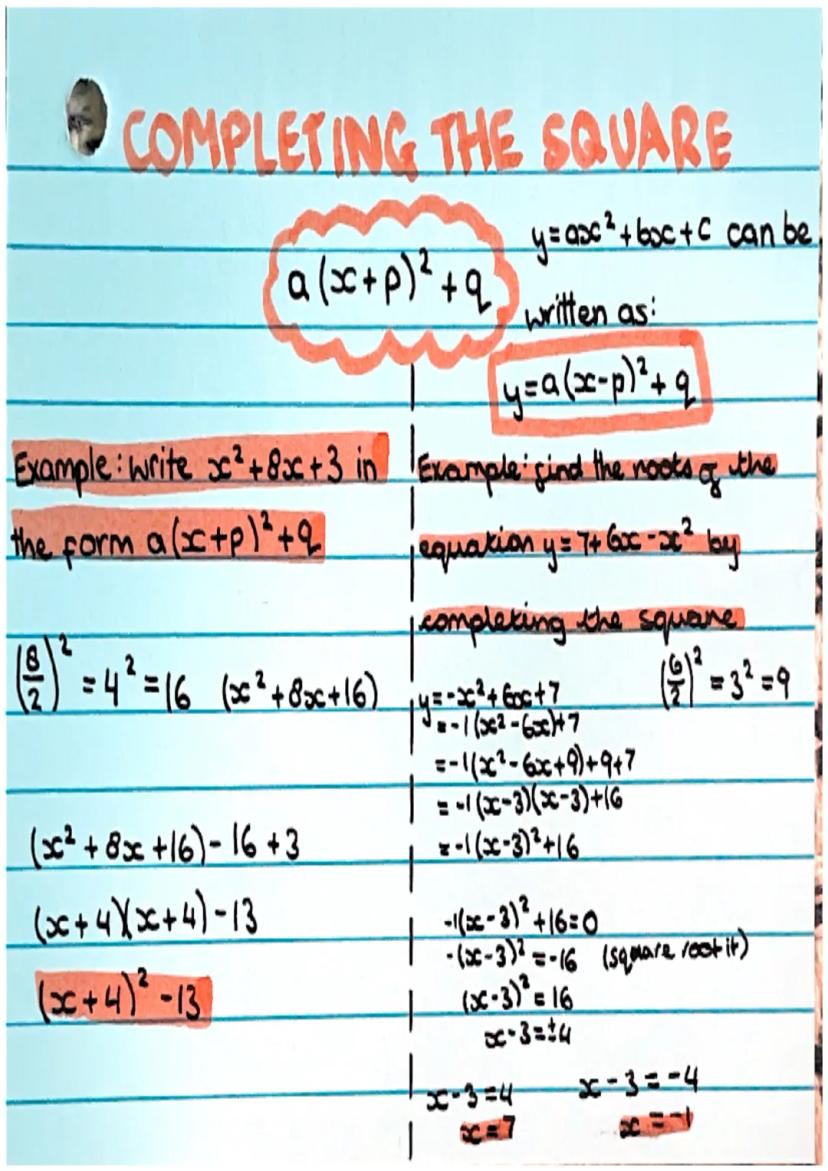 COMPLETING THE SQUARE
a(x+p)² + q
y=ax²+bx+c can be
written as:
y=a(x-p)²+q
Example: write x²+8x+3 in
the form a(x+p)²+q
(8/2)² = 4² = 16 (x²+8x+16)
(x²+8x+16)-16+3
(x+4)(x+4)-13
(x+4)²-13
Example: find the roots of the
equation y=7+6x-x² by
completing the square
y=-x²+6x+7
(6/2)² = 3² = 9
y=-1(x²-6x)+7
=-1(x²-6x+9)+9+7
=-1(x-3)(x-3)+16
=-1(x-3)²+16
-1(x-3)²+16=0
-(x-3)²=-16 (square root it)
(x-3)²=16
x-3=±4
x-3=4 x-3=-4
x=7 x=-1